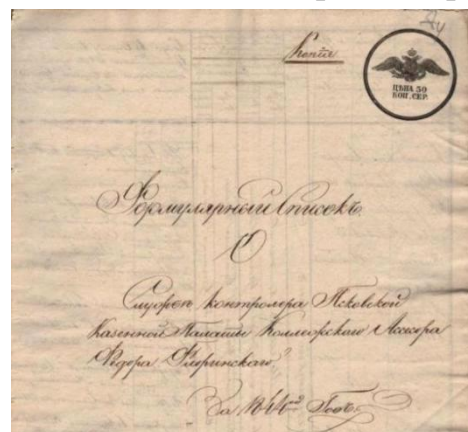 Копія
ЦѢНА 50
КОП. СЕР.
Формулярный Списокъ
О
Службѣ контролера Псковской
Казенной Палаты Коллежскаго Асесора
Федора
За Годъ.